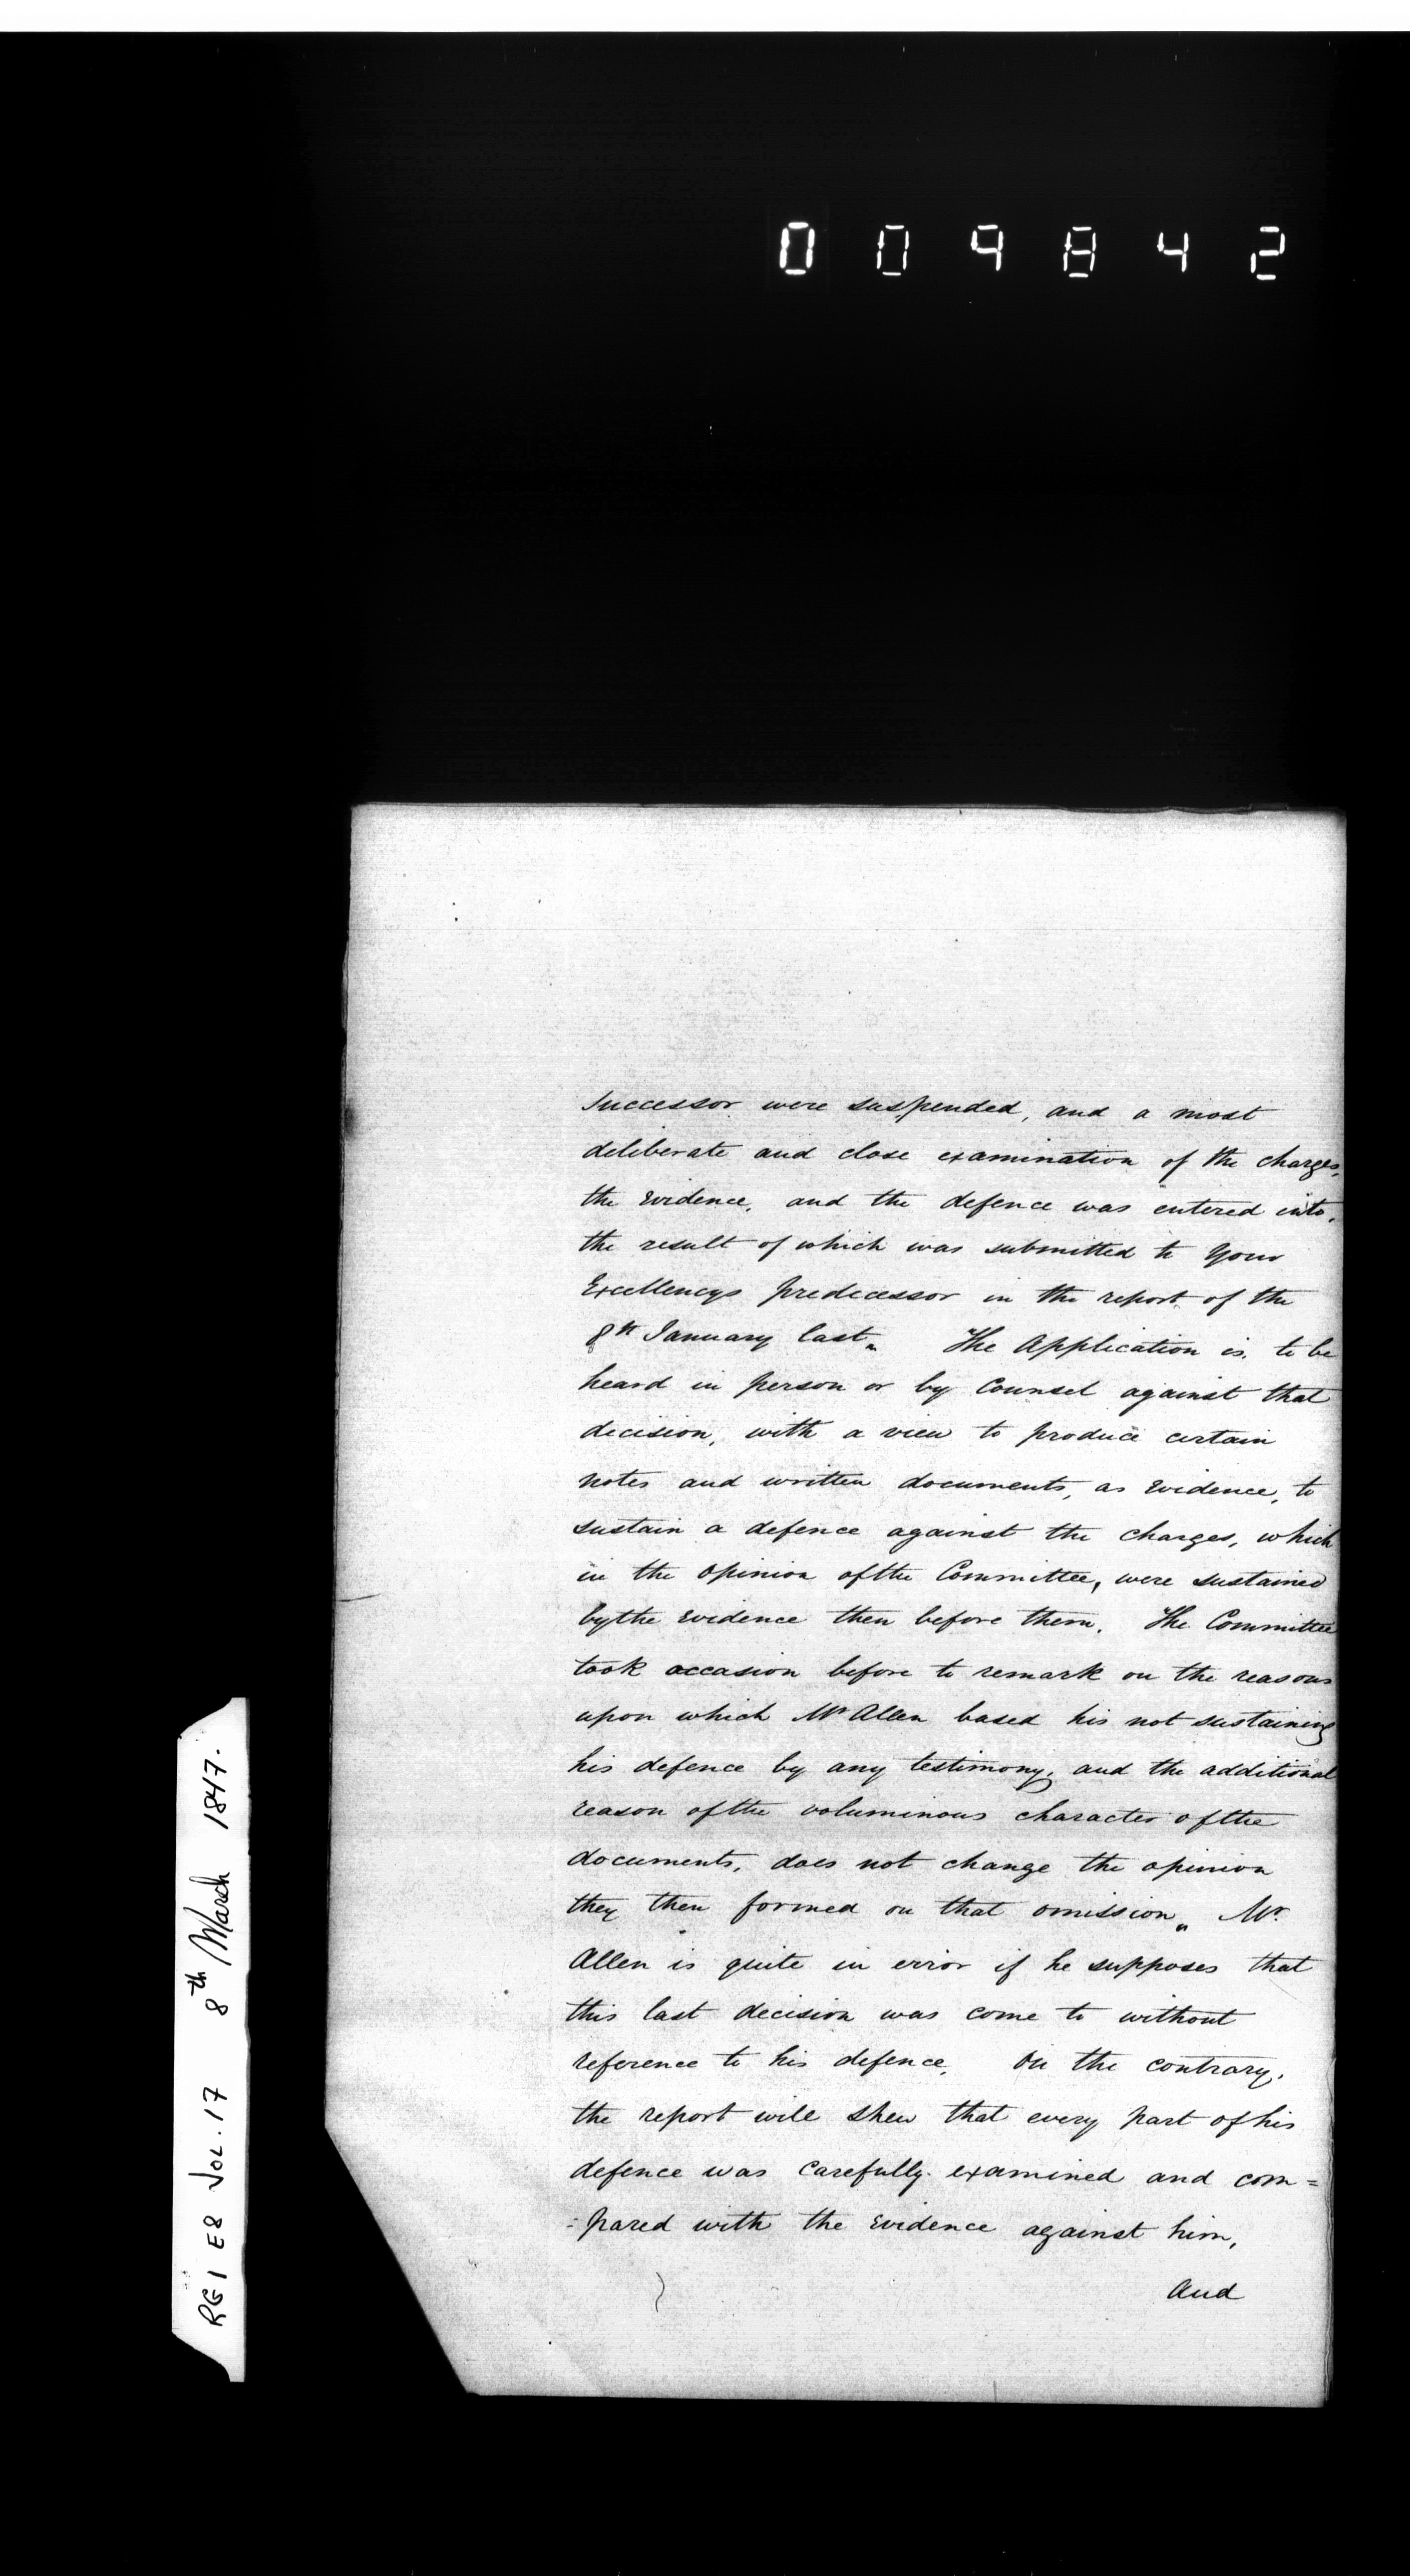 009842
successor were suspended, and a most
deliberate and close examination of the charges,
the evidence, and the defence was entered into,
the result of which was submitted to Your
Excellencys predecessor in the report of the
8th January last. The Application is, to be
heard in person or by Counsel against that
decision, with a view to produce certain
notes and written documents, as evidence, to
sustain a defence against the charges, which
in the opinion of the Committee, were sustained
by the evidence then before them. The Committee
took occasion before to remark on the reasons
upon which Mr Allen based his not sustaining
his defence by any testimony, and the additional
reason of the voluminous character of the
documents, does not change the opinion
they then formed on that omission. Mr.
Allen is quite in error if he supposes that
this last decision was come to without
reference to his defence. On the contrary,
the report will shew that every part of his
defence was carefully examined and com=
=pared with the evidence against him,
and
RG 1 E8 VOL. 17 8th March 1847.